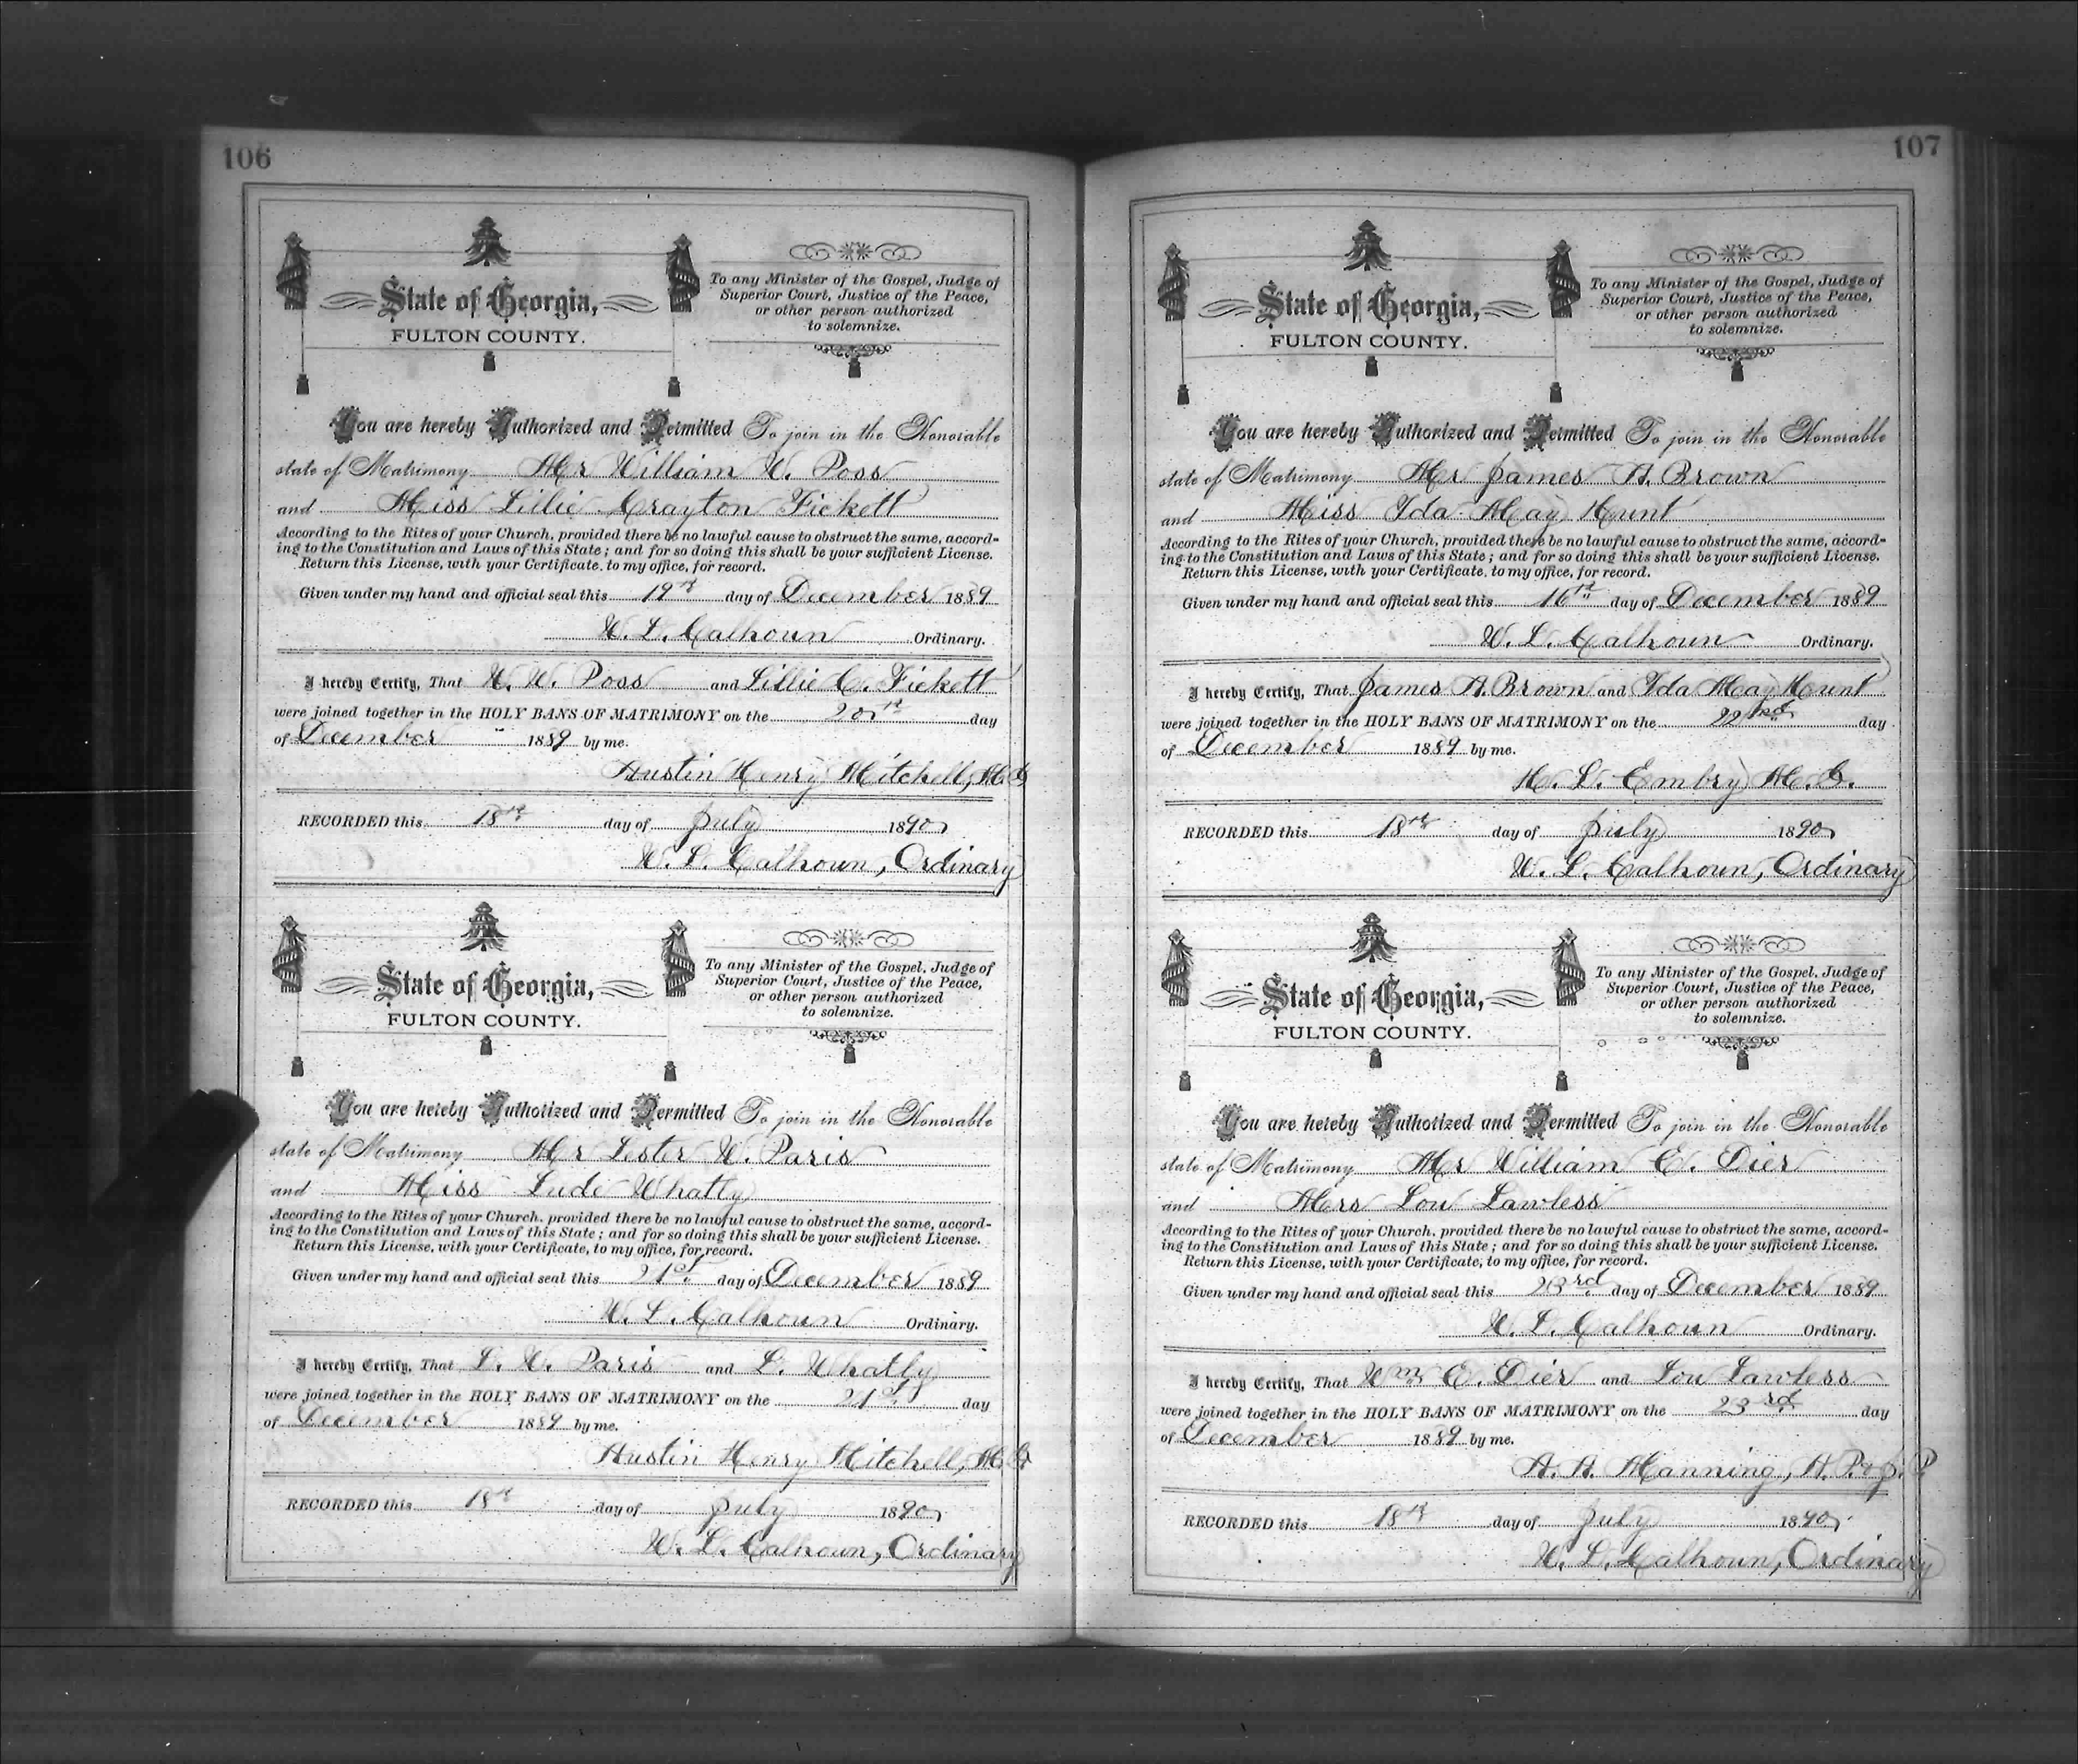 106
State of Georgia,
FULTON COUNTY.
To any Minister of the Gospel, Judge of
Superior Court, Justice of the Peace,
or other person authorized
to solemnize.
You are hereby Authorized and Permitted To join in the Honorable
state of Matrimony Mr William W. Poss
and Miss Lillie Crayton Fickett
According to the Rites of your Church, provided there be no lawful cause to obstruct the same, accord-
ing to the Constitution and Laws of this State; and for so doing this shall be your sufficient License.
Return this License, with your Certificate, to my office, for record.
Given under my hand and official seal this 19th day of December 1889
W. L. Calhoun Ordinary.
I hereby Certify, That W. W. Poss and Lillie C. Fickett
were joined together in the HOLY BANS OF MATRIMONY on the 20th day
of December 1889 by me.
Austin Henry Mitchell, M.G
RECORDED this 18th day of July 1890
W. L. Calhoun, Ordinary
State of Georgia,
FULTON COUNTY.
To any Minister of the Gospel, Judge of
Superior Court, Justice of the Peace,
or other person authorized
to solemnize.
You are hereby Authorized and Permitted To join in the Honorable
state of Matrimony Mr Lester W. Paris
and Miss Lude Whatly
According to the Rites of your Church, provided there be no lawful cause to obstruct the same, accord-
ing to the Constitution and Laws of this State; and for so doing this shall be your sufficient License.
Return this License, with your Certificate, to my office, for record.
Given under my hand and official seal this 21st day of December 1889
W. L. Calhoun Ordinary.
I hereby Certify, That L. W. Paris and L. Whatly
were joined together in the HOLY BANS OF MATRIMONY on the 21st day
of December 1889 by me.
Austin Henry Mitchell, M.G
RECORDED this 18th day of July 1890
W. L. Calhoun, Ordinary
107
State of Georgia,
FULTON COUNTY.
To any Minister of the Gospel, Judge of
Superior Court, Justice of the Peace,
or other person authorized
to solemnize.
You are hereby Authorized and Permitted To join in the Honorable
state of Matrimony Mr James A. Brown
and Miss Ida May Hunt
According to the Rites of your Church, provided there be no lawful cause to obstruct the same, accord-
ing to the Constitution and Laws of this State; and for so doing this shall be your sufficient License.
Return this License, with your Certificate, to my office, for record.
Given under my hand and official seal this 16th day of December 1889
W. L. Calhoun Ordinary.
I hereby Certify, That James A. Brown and Ida May Hunt
were joined together in the HOLY BANS OF MATRIMONY on the 22nd day
of December 1889 by me.
H. L. Embry M.G.
RECORDED this 18th day of July 1890
W. L. Calhoun, Ordinary
State of Georgia,
FULTON COUNTY.
To any Minister of the Gospel, Judge of
Superior Court, Justice of the Peace,
or other person authorized
to solemnize.
You are hereby Authorized and Permitted To join in the Honorable
state of Matrimony Mr William E. Dier
and Mrs Lou Lawless
According to the Rites of your Church, provided there be no lawful cause to obstruct the same, accord-
ing to the Constitution and Laws of this State; and for so doing this shall be your sufficient License.
Return this License, with your Certificate, to my office, for record.
Given under my hand and official seal this 23rd day of December 1889
W. L. Calhoun Ordinary.
I hereby Certify, That Wm. E. Dier and Lou Lawless
were joined together in the HOLY BANS OF MATRIMONY on the 23rd day
of December 1889 by me.
A. A. Manning, N. P. & J. P.
RECORDED this 18th day of July 1890
W. L. Calhoun, Ordinary